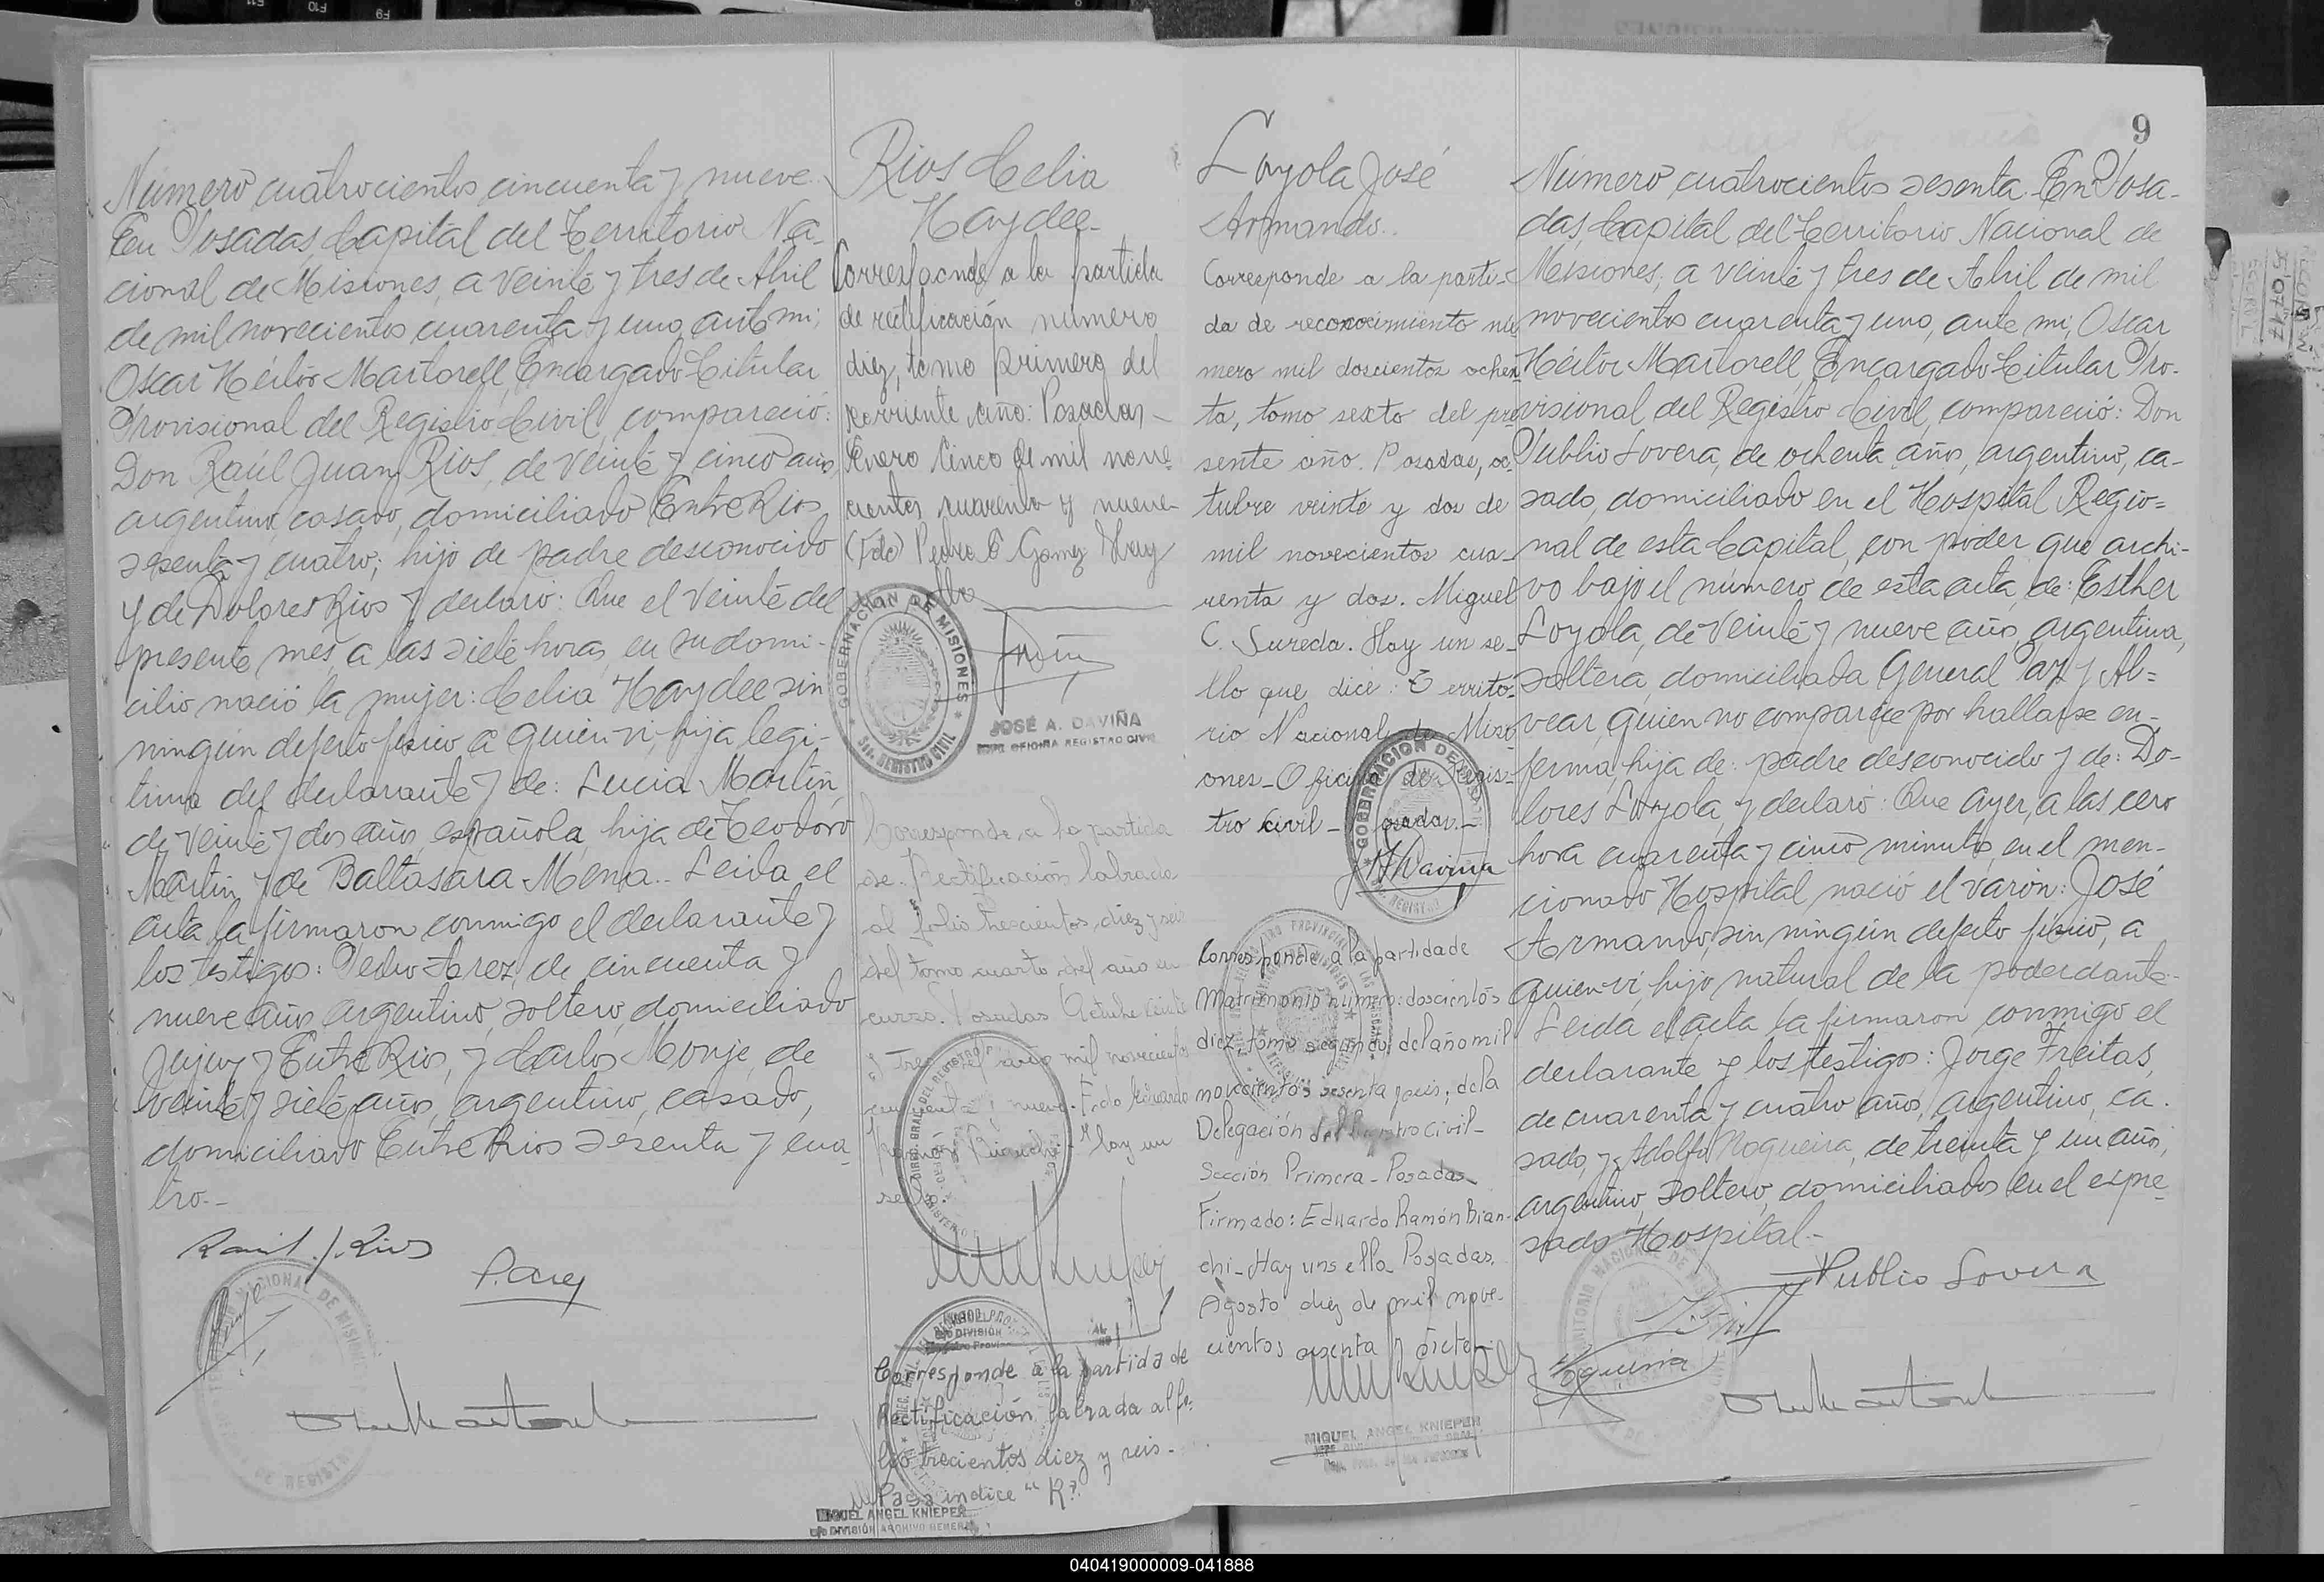 Número cuatrocientos cincuenta y nueve.
En Posadas, Capital del Territorio Na-
cional de Misiones, a veinte y tres de Abril
de mil novecientos cuarenta y uno, ante mi,
Oscar Héctor Martorell, Encargado Titular
Provisional del Registro Civil, compareció:
Don Raúl Juan Rios, de veinte y cinco años,
argentino, casado, domiciliado Entre Rios
sesenta y cuatro; hijo de padre desconocido
y de Dolores Rios y declaró: Que el veinte del
presente mes, a las siete horas, en su domi-
cilio nació la mujer: Celia Haydee sin
ningún defecto fisico a quien vi, hija legi-
tima del declarante y de: Lucia Martin,
de veinte y dos años, española, hija de Teodoro
Martin y de Baltasara Mena. Leida el
acta la firmaron conmigo el declarante y
los testigos: Pedro Arez, de cincuenta y
nueve años, argentino, soltero, domiciliado
Jujuy y Entre Rios, y Carlos Monje, de
veinte y siete años, argentino, casado,
domiciliado Entre Rios sesenta y cua-
tro.-
Raul J. Rios
Rios Celia
Haydee-
Corresponde a la partida
de rectificación número
diez, tomo primero del
corriente año: Posadas-
Enero Cinco de mil nove-
cientos cuarenta y nueve-
(Fdo) Pedro E Gomez Hay
GOBERNACION DE MISIONES
REGISTRO CIVIL
JOSÉ A. DAVIÑA
OFICINA REGISTRO CIVIL
Corresponde a la partida
de Rectificación labrada
al folio trescientos diez y seis
del tomo cuarto del año en
curso. Posadas Octubre veinte
y tres del año mil novecientos
cincuenta y nueve. Fdo Eduardo
Ramón Bianchi - Hay un
sello.
Corresponde a la partida de
Rectificación labrada al fo-
lio trecientos diez y seis-
Pasa indice "R".
MIGUEL ANGEL KNIEPER
DIVISIÓN ARCHIVO GENERAL
Loyola José
Armando.
Corresponde a la parti-
da de reconocimiento nú-
mero mil doscientos ochen-
ta, tomo sexto del pre-
sente año. Posadas, oc-
tubre veinte y dos de
mil novecientos cua-
renta y dos. Miguel
C. Sureda. Hay un se-
llo que dice: Territo-
rio Nacional de Misi-
ones_Oficina de Regis-
tro civil_Posadas.-
GOBERNACION DE
Corresponde a la partida de
Matrimonio número: doscientos
diez, tomo segundo, del año mil
novecientos sesenta y seis, de la
Delegación del Registro civil-
Sección Primera-Posadas-
Firmado: Eduardo Ramón Bian-
chi-Hay un sello Posadas,
Agosto diez de mil nove-
cientos sesenta y siete.-
MIGUEL ANGEL KNIEPER
9
Número cuatrocientos sesenta. En Posa-
das, Capital del Territorio Nacional de
Misiones, a veinte y tres de Abril de mil
novecientos cuarenta y uno, ante mi, Oscar
Héctor Martorell, Encargado Titular Pro-
visional del Registro Civil, compareció: Don
Publio Lovera, de ochenta años, argentino, ca-
sado, domiciliado en el Hospital Regio=
nal de esta Capital, con poder que archi-
vo bajo el número de esta acta, de: Esther
Loyola, de veinte y nueve años, argentina,
soltera, domiciliada General Paz y Al=
vear, quien no comparece por hallarse en-
ferma, hija de: padre desconocido y de: Do-
lores Loyola, y declaró: Que ayer, a las cero
hora cuarenta y cinco minutos, en el men-
cionado Hospital nació el varón: José
Armando, sin ningún defecto fisico, a
quien vi, hijo natural de la poderdante.
Leida el acta la firmaron conmigo el
declarante y los testigos: Jorge Freitas,
de cuarenta y cuatro años, argentino, ca-
sado, y Adolfo Nogueira, de treinta y un años,
argentino, soltero, domiciliados en el expre-
sado Hospital-
Publio Lovera
040419000009-041888